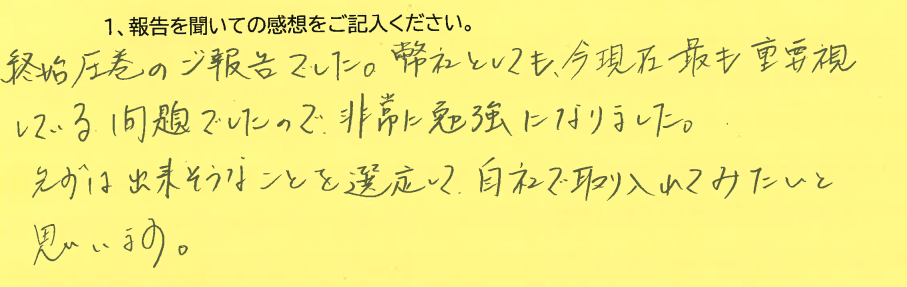 1、報告を聞いての感想をご記入ください。
終始圧巻のご報告でした。弊社としても、今現在最も重要視
している問題でしたので、非常に勉強になりました。
まずは出来そうなことを選定して、自社で取り入れてみたいと
思います。